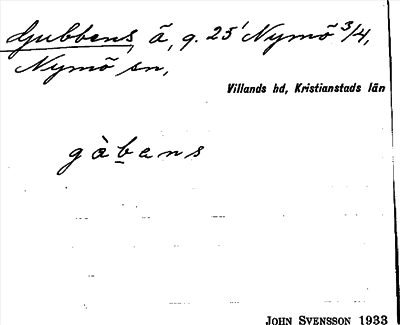 Gubbens, å, g. 25' Nymö 3/4,
Nymö sn,
Villands hd, Kristianstads län
gàbens
JOHN SVENSSON 1933